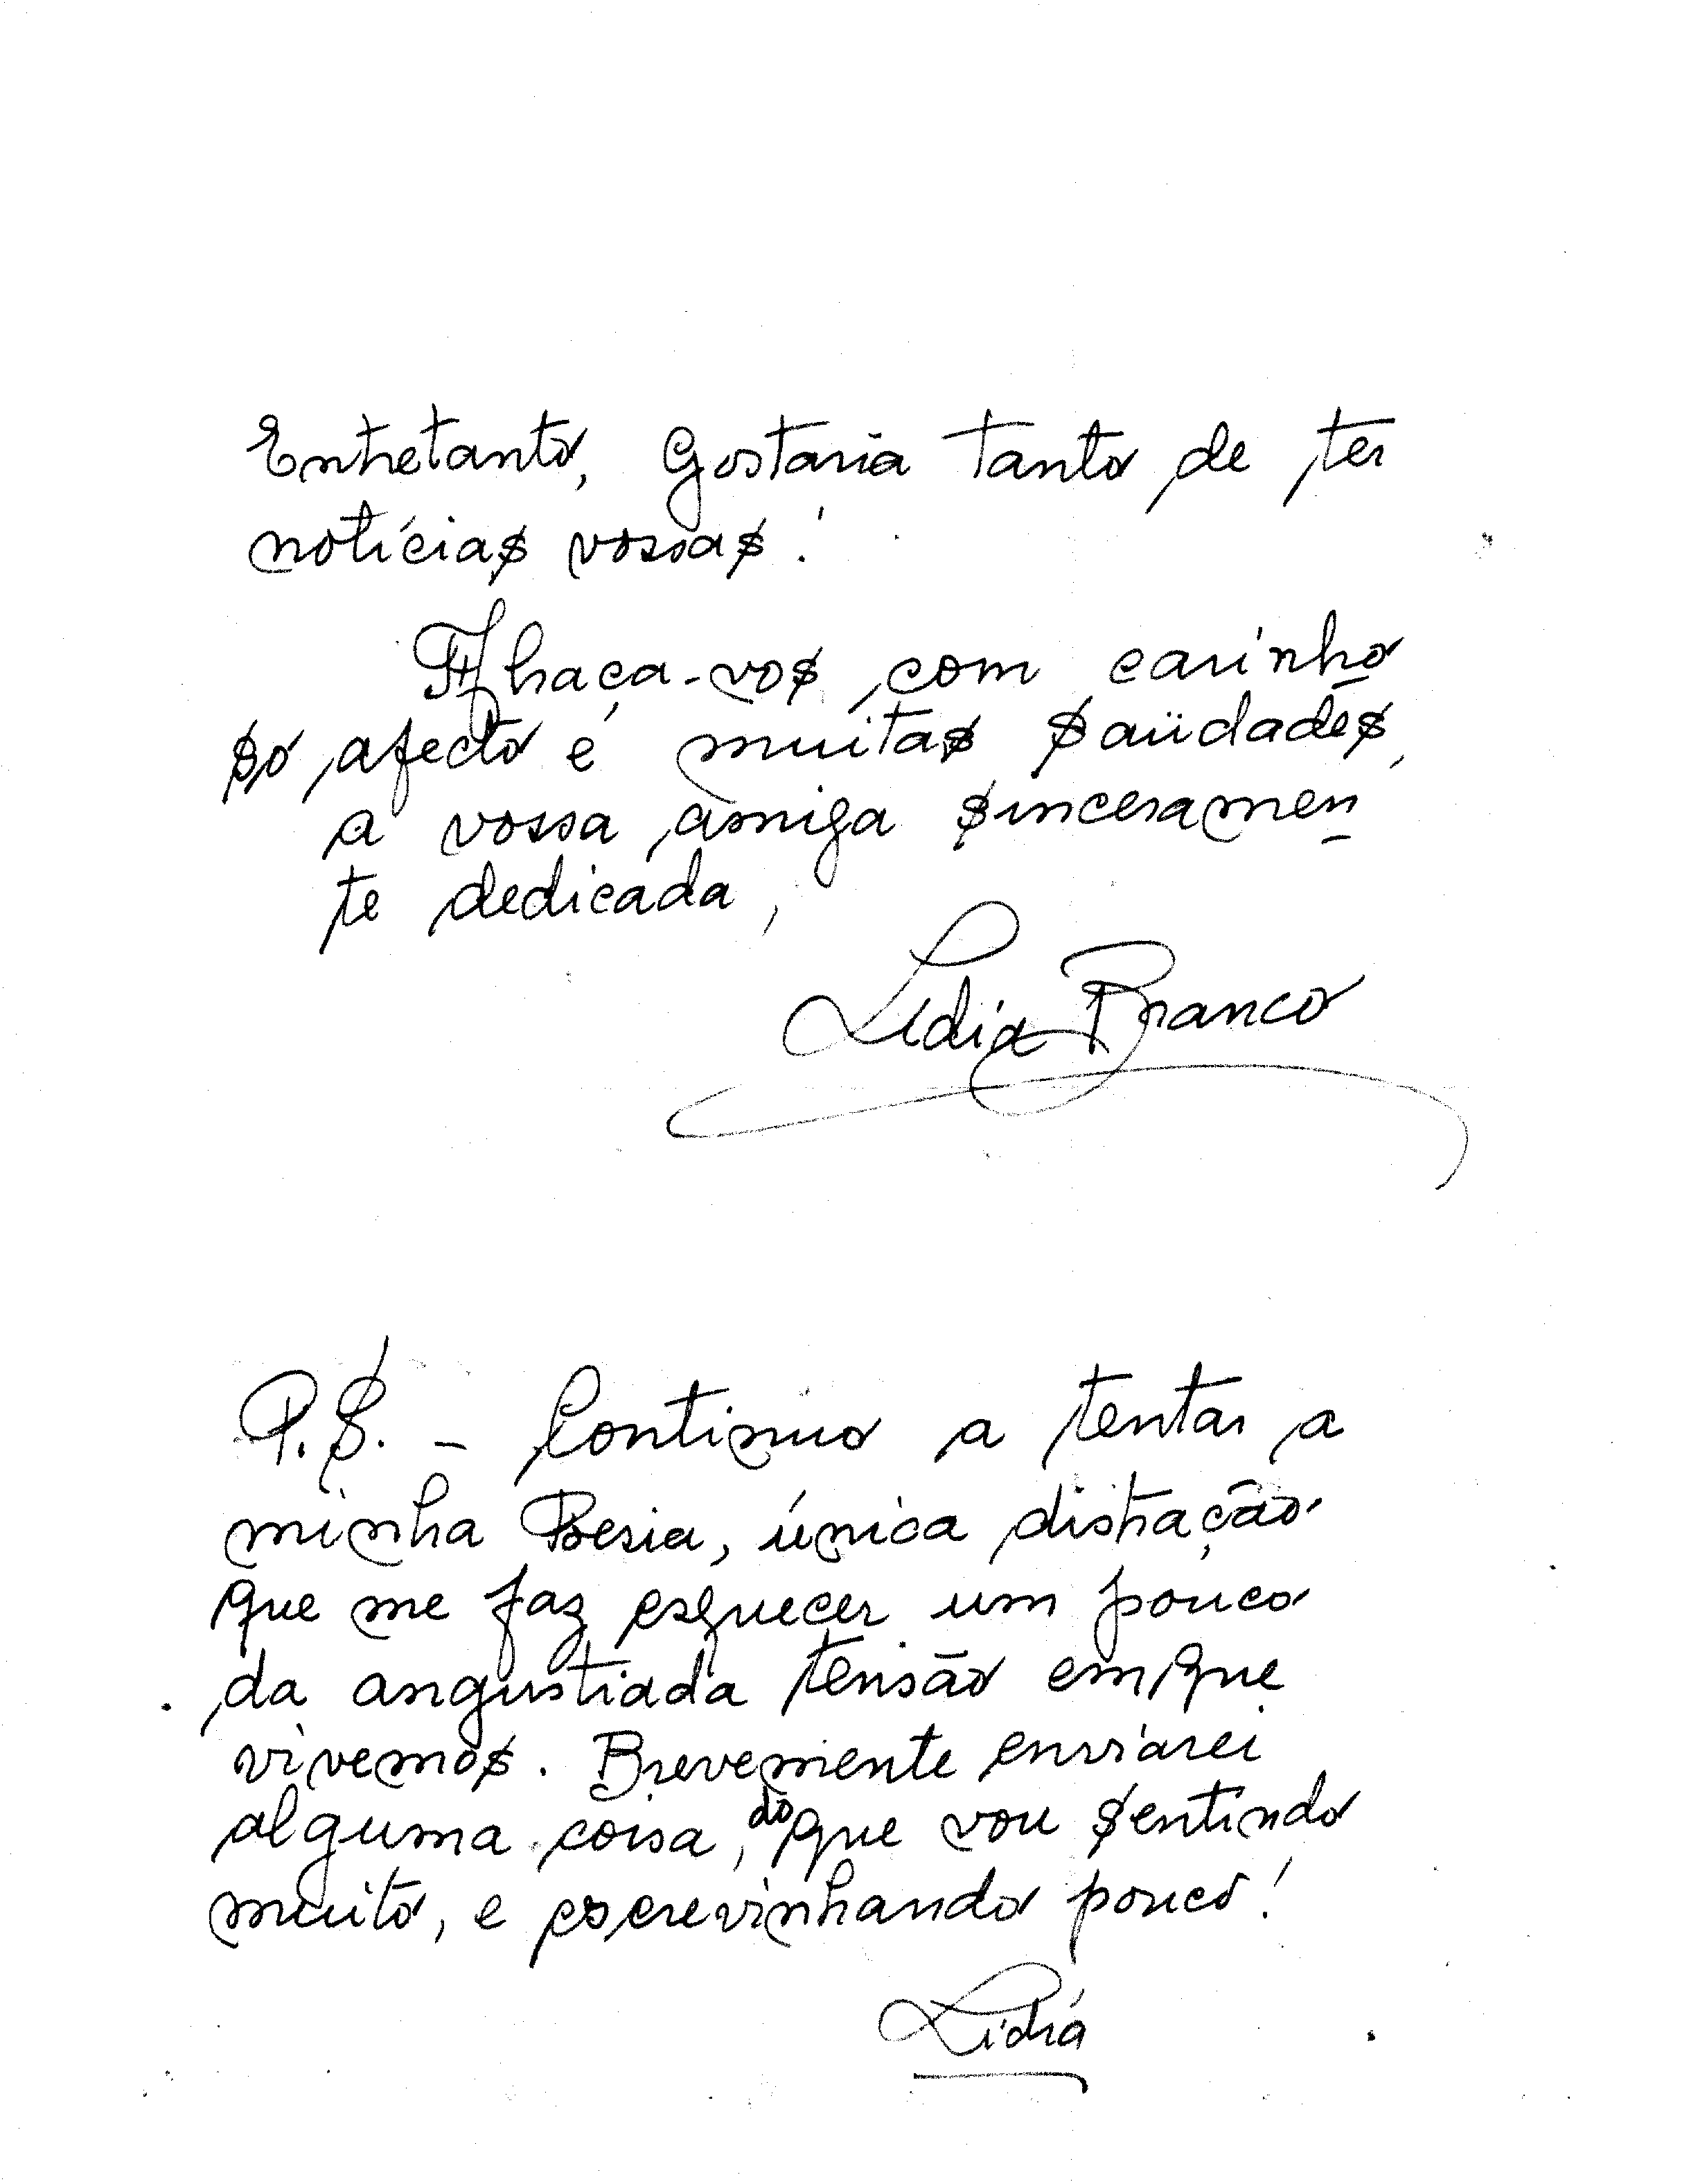 Entretanto, Gostaria tanto de ter
notícias vossas!
Abraça-vos, com carinho
so afecto e muitas saüdades,
a vossa amiga sinceramen
te dedicada,
Lídia Branco
P.S. - Continuo a tentar a
minha Poesia, única distração
que me faz esquecer um pouco
da angustiada tensão em que
vivemos. Brevemente enviarei
alguma coisa, do que vou sentindo
muito, e escrevinhando pouco!
Lídia